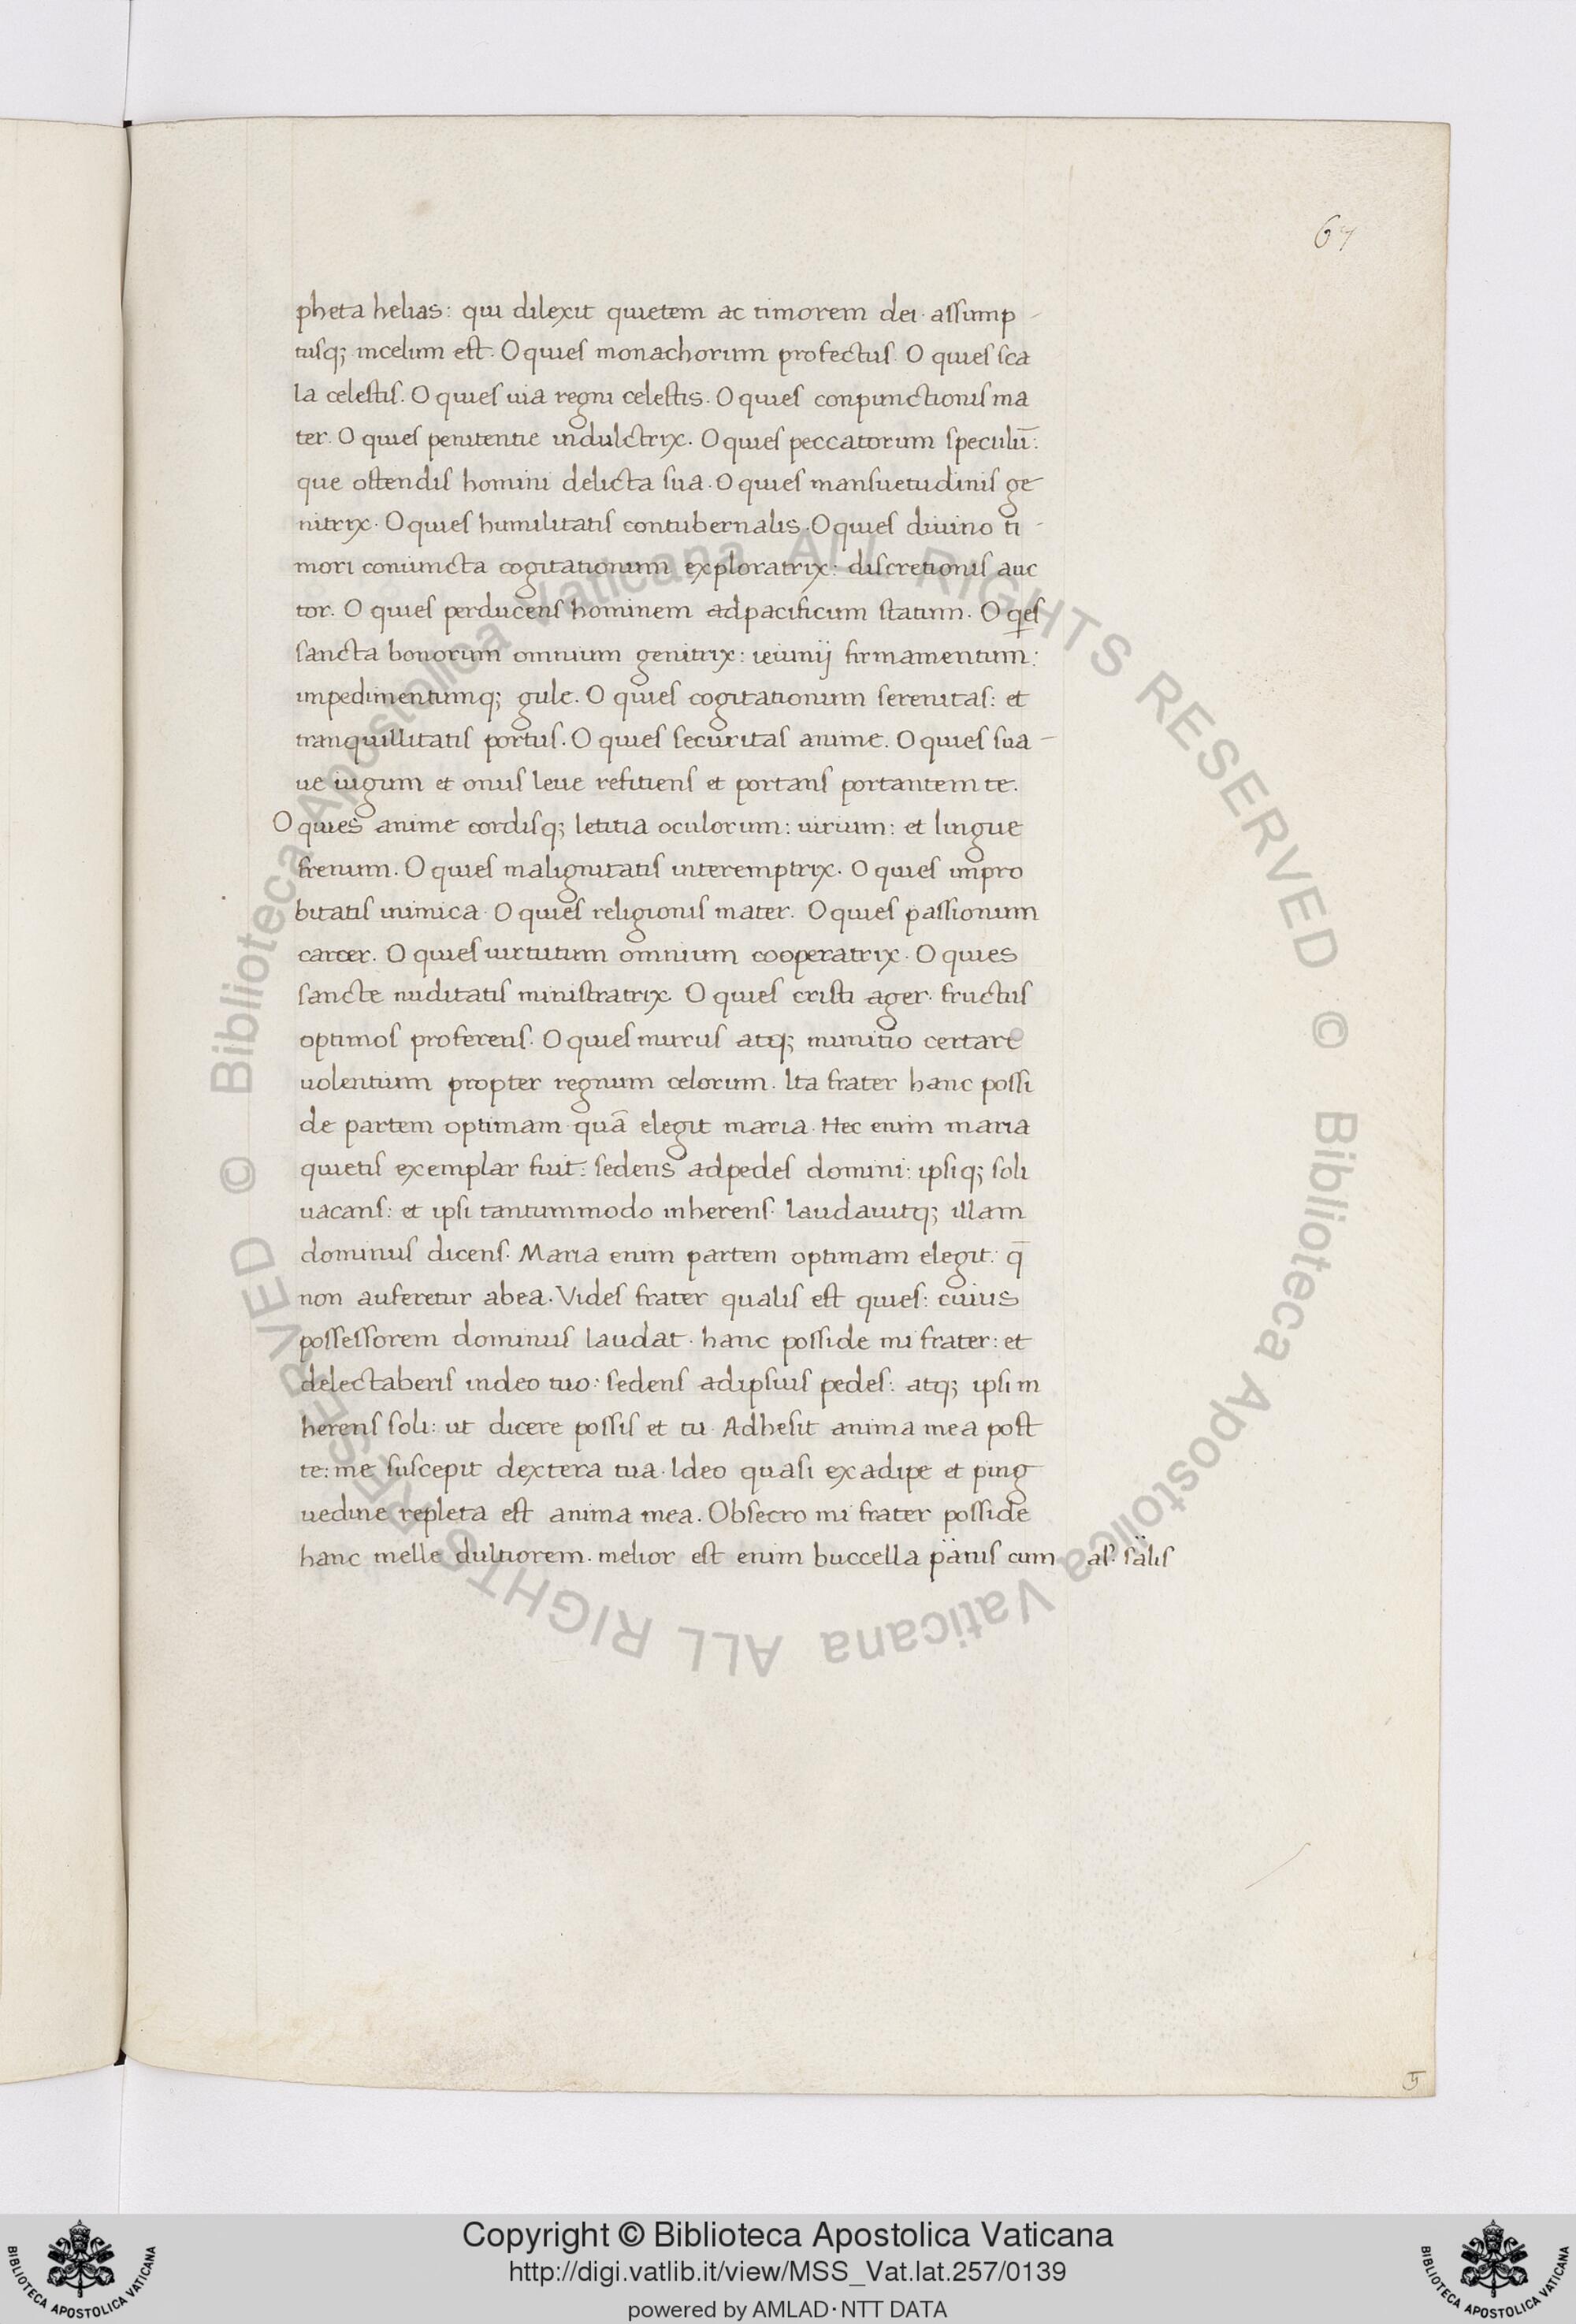 67
pheta helias: qui dilexit quietem ac timorem dei. assump-
tusq; incelum est. O quies monachorum profectus. O quies sca
la celestis. O quies uia regni celestis. O quies conpunctionis ma
ter. O quies penitentie indulctrix. O quies peccatorum speculū:
que ostendis homini delicta sua. O quies mansuetudinis ge
nitrix. O quies humilitatis contubernalis. O quies diuino ti-
mori coniuncta cogitationum exploratrix: discretionis auc
tor. O quies perducens hominem adpacificum statum. O qes
sancta bonorum omnium genitrix: ieiunij firmamentum:
impedimentumq; gule. O quies cogitationum serenitas: et
tranquillitatis portus. O quies securitas anime. O quies sua-
ue iugum et onus leue refitiens et portans portantem te.
O quies anime cordisq; letitia oculorum: uirium: et lingue
frenum. O quies malignitatis interemptrix. O quies impro
bitatis inimica. O quies religionis mater. O quies passionum
carcer. O quies uirtutum omnium cooperatrix. O quies
sancte nuditatis ministratrix. O quies cristi ager. fructus
optimos proferens. O quies murus atq; munitio certare
uolentium propter regnum celorum. Ita frater hanc possi
de partem optimam quā elegit maria. Hec enim maria
quietis exemplar fuit: sedens adpedes domini: ipsiq; soli
uacans: et ipsi tantummodo inherens. laudauitq; illam
dominus dicens. Maria enim partem optimam elegit: q̄
non auferetur abea. Vides frater qualis est quies: cuius
possessorem dominus laudat. hanc posside mi frater: et
delectaberis indeo tuo: sedens adipsius pedes: atq; ipsi in
herens soli: ut dicere possis et tu. Adhesit anima mea post
te: me suscepit dextera tua. Ideo quasi exadipe et ping
uedine repleta est anima mea. Obsecro mi frater posside
hanc melle dultiorem. melior est enim buccella p̈anis cum al. s̈alis
Copyright © Biblioteca Apostolica Vaticana
http://digi.vatlib.it/view/MSS_Vat.lat.257/0139
powered by AMLAD · NTT DATA
BIBLIOTECA APOSTOLICA VATICANA
BIBLIOTECA APOSTOLICA VATICANA
© Biblioteca Apostolica Vaticana ALL RIGHTS RESERVED
© Biblioteca Apostolica Vaticana ALL RIGHTS RESERVED